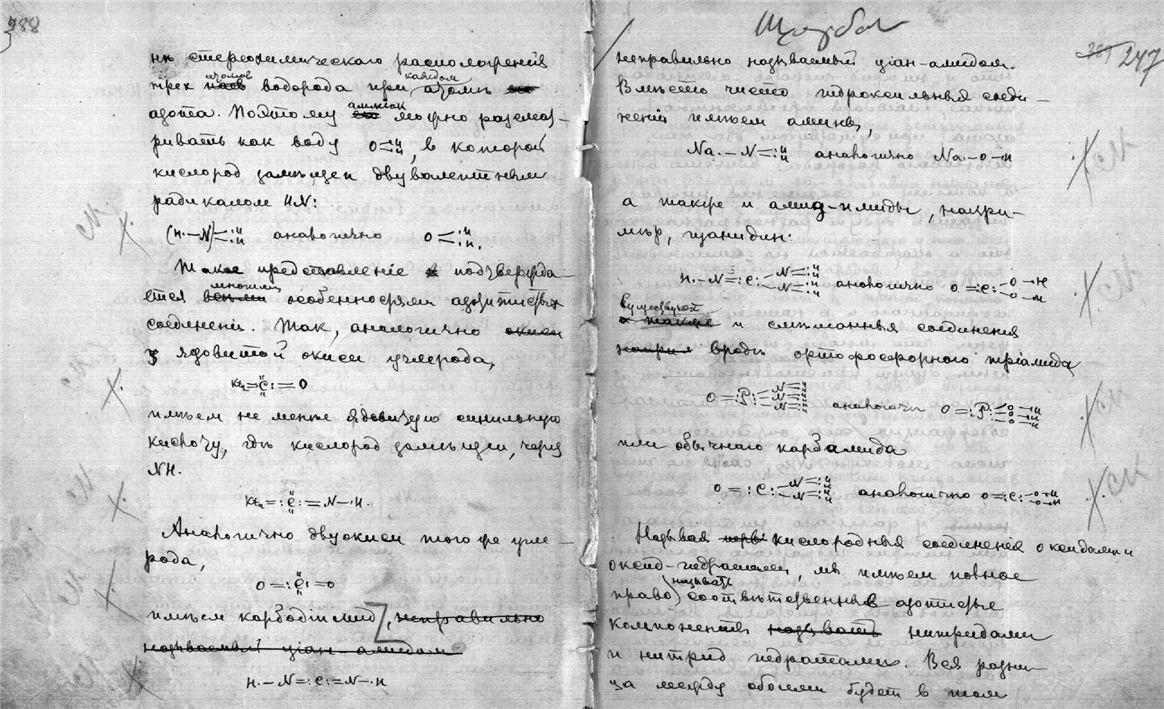 288
нк стереохимическаго расположенія
трех атомов водорода при каждом атомѣ
азота. Поэтому аммiак можно разсмат-
ривать как воду O=H H, в которой
кислород замѣщен двувалентным
радикалом HN:
(H.–N)=H H аналогично O=H H.
Такое представленіе подтвержда-
ется многими особенностями азотистых
соединеній. Так, аналогично окиси
ядовитой окиси углерода,
=C=O
имѣем не менѣе ядовитую синильную
кислоту, гдѣ кислород замѣщен, через
NH.
=:C:=N–H.
Аналогично двуокиси того же угле-
рода,
O=:C:=O
имѣем карбодиимид, неправильно
называемый цiан-амидом
H.–N=:C:=N–H
Щербак
247
неправильно называемый цiан-амидом.
Вмѣсто чисто гидроксильных соеди-
неній имѣем амины,
Na.–N=H H аналогично Na.–O–H
а также и амид-имиды, напри-
мѣр, гуанидин:
H.–N=:C:=N=H H N=H H аналогично O=:C: O–H O–H
Существуют
а также и смѣшанныя соединенія
вродѣ ортофосфорнаго тріамида
O=:P: N=H H N=H H N=H H аналогичн O=:P: O–H O–H O–H
или обычнаго карбамида
O=:C: N=H H N=H H аналогично O=:C: O–H O–H
Называя кислородныя соединенія оксидами и
оксид-гидратами, мы имѣем полное
право называть соотвѣтственныя азотистые
компоненты называть нитридами
и нитрид гидратами. Вся разни-
ца между обоими будет в том